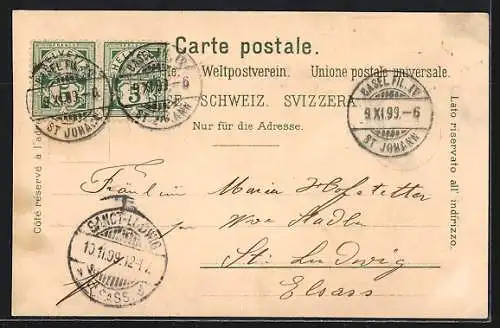 Carte postale.
Weltpostverein. Union postale universale.
SCHWEIZ. SVIZZERA
Nur für die Adresse.
Côté réservé à l'adresse
Lato riservato all' indirizzo.
5 5
BASEL FIL.
9 XI.99.-6
ST JOHANN
BASEL FIL.
9 XI.99.-6
ST JOHANN
T
SANCT-LUDWIG
10.11.99.12-1
ELSASS
Fräulein Maria Hofstetter
per Wwe Stadler
St. Ludwig
Elsass